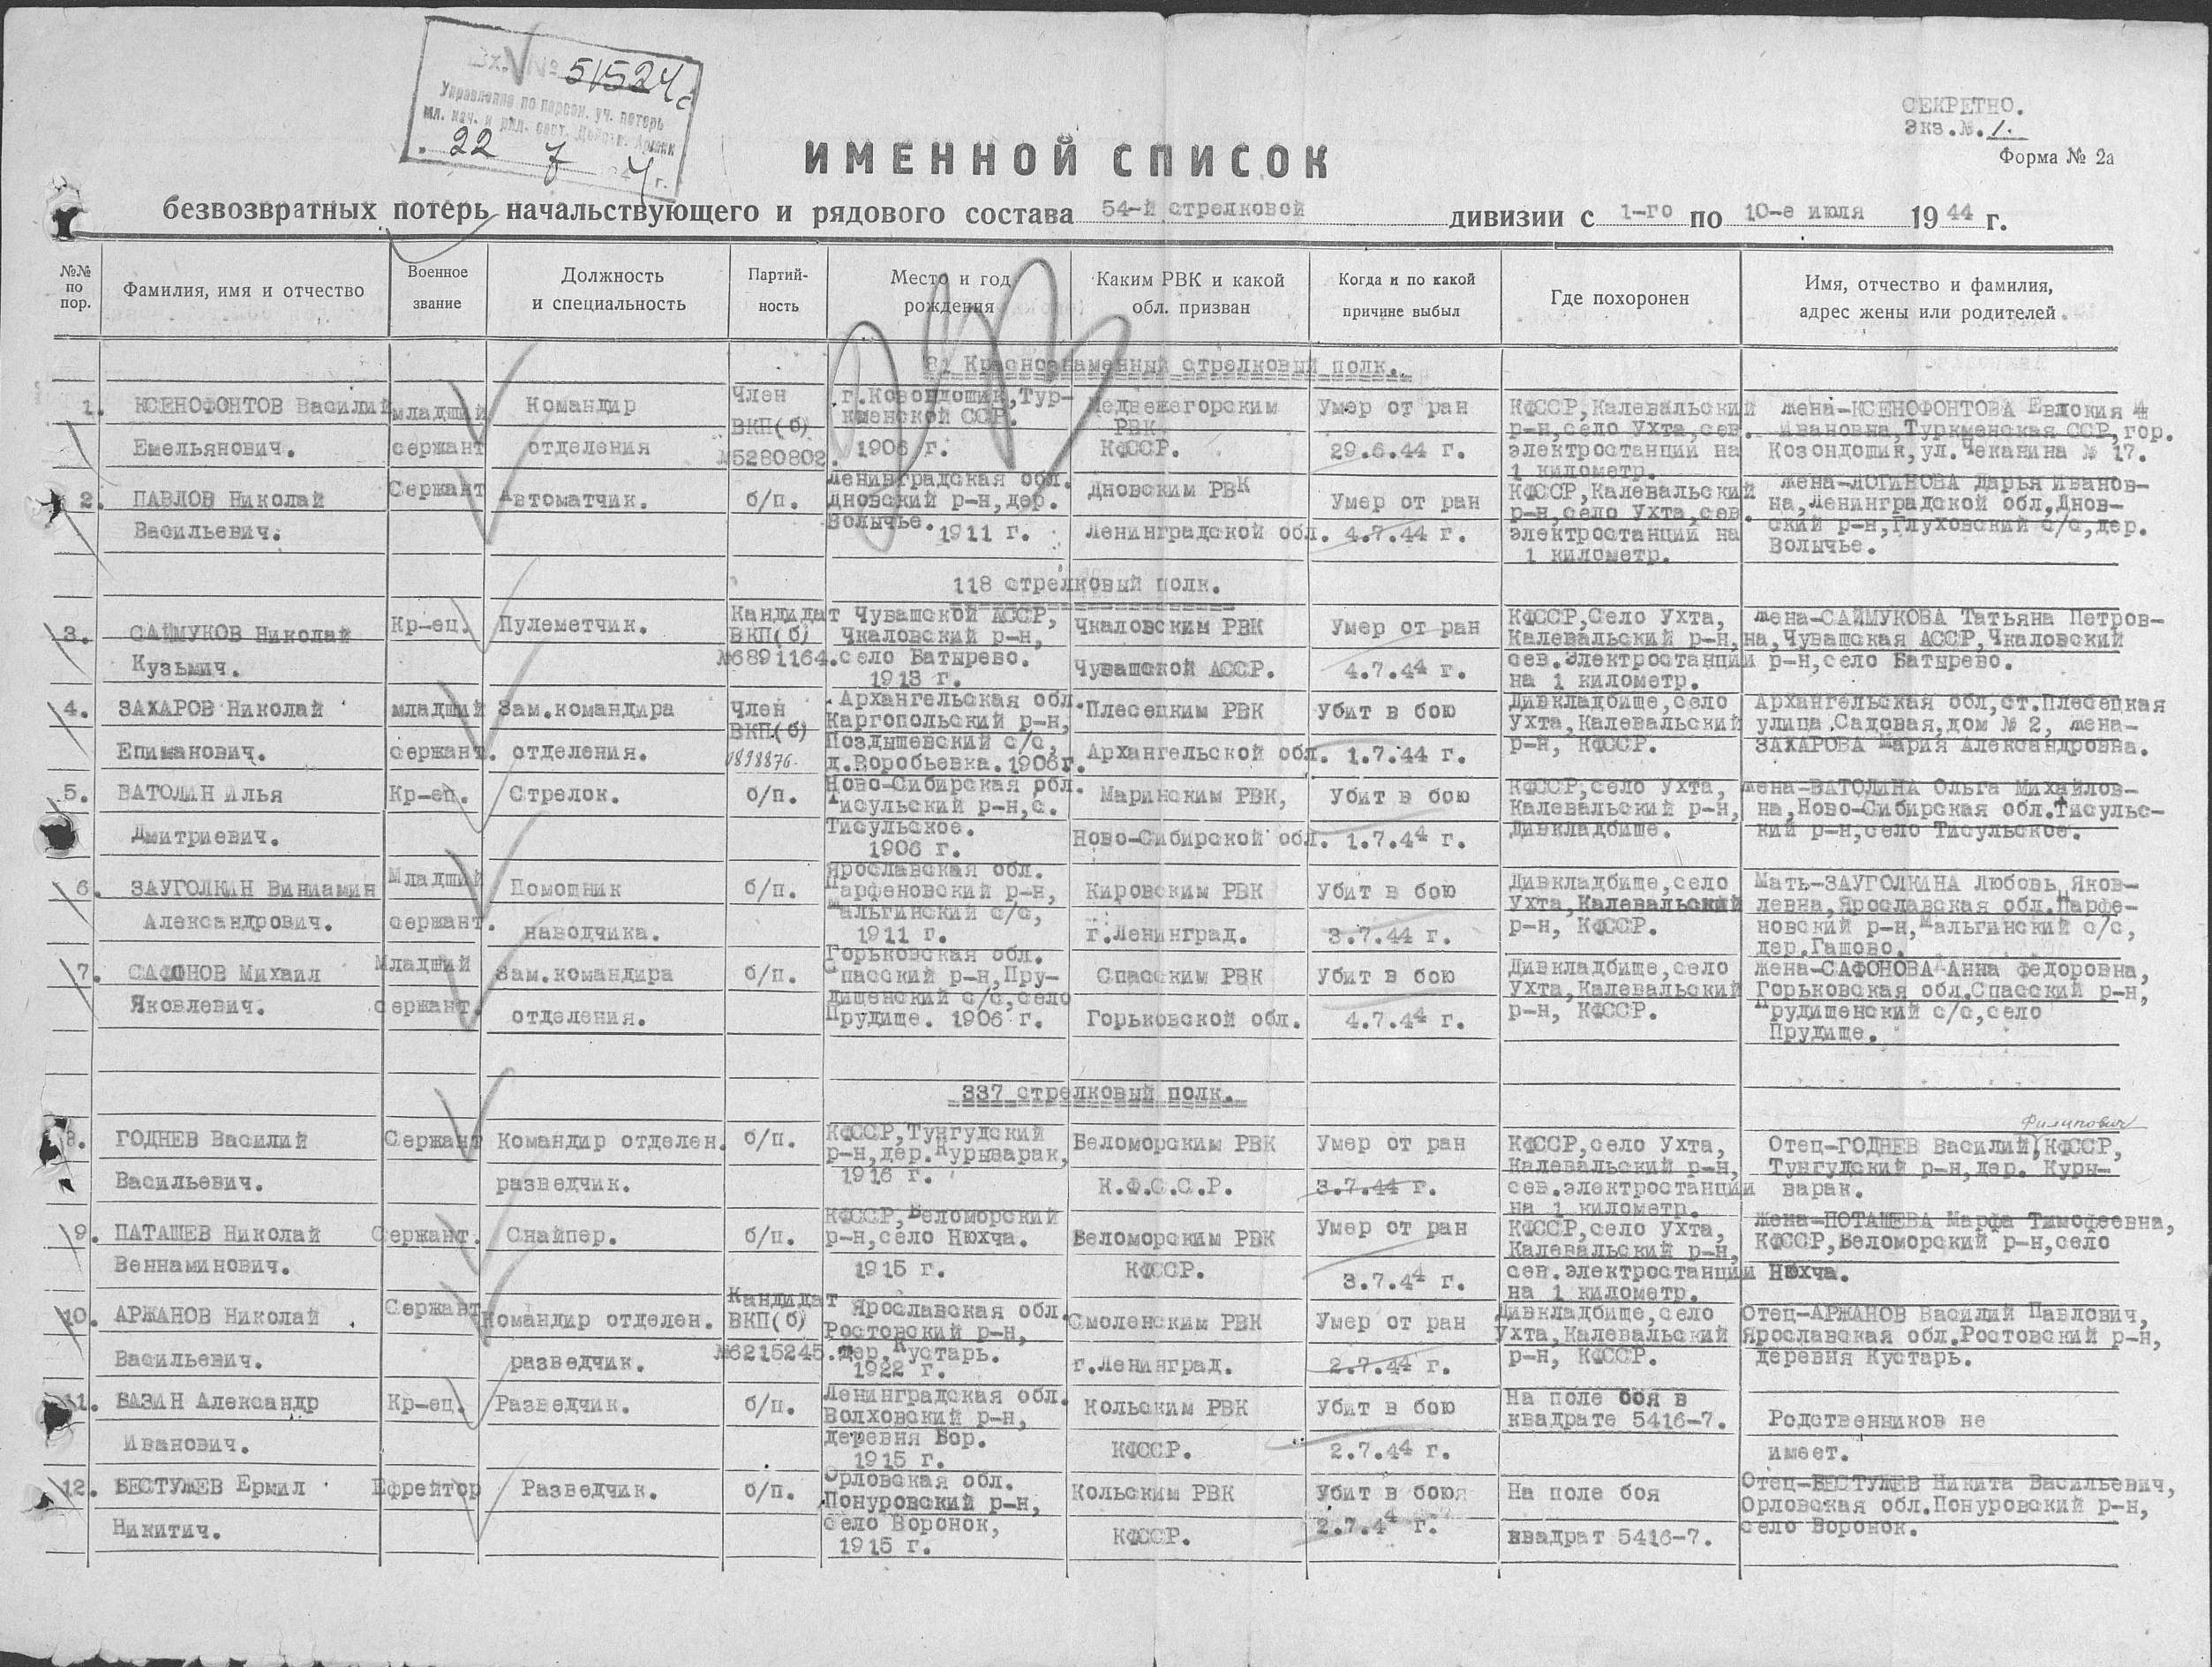 Вх. № 51524с
Управление по персон. уч. потерь
мл. нач. и ряд. сост. Действ. Армии
22 7 44 г.
СЕКРЕТНО.
Экз.№. 1.
Форма № 2а
ИМЕННОЙ СПИСОК
безвозвратных потерь начальствующего и рядового состава 54-й стрелковой дивизии с 1-го по 10-е июля 1944 г.
№№ по пор.
Фамилия, имя и отчество
Военное звание
Должность и специальность
Партий-ность
Место и год рождения
Каким РВК и какой обл. призван
Когда и по какой причине выбыл
Где похоронен
Имя, отчество и фамилия, адрес жены или родителей
81 Краснознаменный стрелковый полк.
1. КСЕНОФОНТОВ Василий
Емельянович.
младший
сержант
Командир
отделения
Член
ВКП(б)
№5280802.
г.Козондошик,Тур-
кменской ССР.
1906 г.
Медвежегорским
РВК.
КФССР.
Умер от ран
29.6.44 г.
КФССР,Калевальский
р-н,село Ухта,сев.
электростанции на
1 километр.
Жена-КСЕНОФОНТОВА Евдокия
Ивановна,Туркменская ССР,гор.
Козондошик,ул.Чеканина № 17.
2. ПАВЛОВ Николай
Васильевич.
Сержант
Автоматчик.
б/п.
Ленинградская обл.
Дновский р-н,дер.
Волычье.
1911 г.
Дновским РВК
Ленинградской обл.
Умер от ран
4.7.44 г.
КФССР,Калевальский
р-н,село Ухта,сев.
электростанции на
1 километр.
Жена-ЛОГИНОВА Дарья Иванов-
на,Ленинградской обл,Днов-
ский р-н,Глуховский с/с,дер.
Волычье.
118 стрелковый полк.
3. САЙМУКОВ Николай
Кузьмич.
Кр-ец.
Пулеметчик.
Кандидат
ВКП(б)
№6891164.
Чувашской АССР,
Чкаловский р-н,
село Батырево.
1913 г.
Чкаловским РВК
Чувашской АССР.
Умер от ран
4.7.44 г.
КФССР,Село Ухта,
Калевальский р-н,
сев.Электростанции
на 1 километр.
Жена-САЙМУКОВА Татьяна Петров-
на,Чувашская АССР,Чкаловский
р-н,село Батырево.
4. ЗАХАРОВ Николай
Епиманович.
младший
сержант.
Зам.командира
отделения.
Член
ВКП(б)
0898876.
Архангельская обл.
Каргопольский р-н,
Поздышевский с/с,
д.Воробьевка.1906г.
Плесецким РВК
Архангельской обл.
Убит в бою
1.7.44 г.
Дивкладбище,село
Ухта,Калевальский
р-н, КФССР.
Архангельская обл,ст.Плесецкая
улица Садовая,дом № 2, жена-
ЗАХАРОВА Мария Александровна.
5. ВАТОЛИН Илья
Дмитриевич.
Кр-ец.
Стрелок.
б/п.
Ново-Сибирская обл.
Тисульский р-н,с.
Тисульское.
1906 г.
Маринским РВК,
Ново-Сибирской обл.
Убит в бою
1.7.44 г.
КФССР,село Ухта,
Калевальский р-н,
Дивкладбище.
Жена-ВАТОЛИНА Ольга Михайлов-
на,Ново-Сибирская обл.Тисульс-
кий р-н,село Тисульское.
6. ЗАУГОЛКИН Виниамин
Александрович.
Младший
сержант.
Помощник
наводчика.
б/п.
Ярославская обл.
Парфеновский р-н,
Мальгинский с/с,
1911 г.
Кировским РВК
г.Ленинград.
Убит в бою
3.7.44 г.
Дивкладбище,село
Ухта,Калевальский
р-н, КФССР.
Мать-ЗАУГОЛКИНА Любовь Яков-
левна,Ярославская обл.Парфе-
новский р-н,Мальгинский с/с,
дер.Гашово.
7. САФОНОВ Михаил
Яковлевич.
Младший
сержант.
Зам.командира
отделения.
б/п.
Горьковская обл.
Спасский р-н,Пру-
дищенский с/с,село
Прудище. 1906 г.
Спасским РВК
Горьковской обл.
Убит в бою
4.7.44 г.
Дивкладбище,село
Ухта,Калевальский
р-н, КФССР.
Жена-САФОНОВА Анна Федоровна,
Горьковская обл.Спасский р-н,
Прудищенский с/с,село
Прудище.
337 стрелковый полк.
8. ГОДНЕВ Василий
Васильевич.
Сержант
Командир отделен.
разведчик.
б/п.
КФССР,Тунгудский
р-н,дер.Курыварак,
1916 г.
Беломорским РВК
К.Ф.С.С.Р.
Умер от ран
3.7.44 г.
КФССР,село Ухта,
Калевальский р-н,
сев.электростанции
на 1 километр.
Филипович
Отец-ГОДНЕВ Василий,КФССР,
Тунгудский р-н,дер. Куры-
варак.
9. ПАТАШЕВ Николай
Веннаминович.
Сержант.
Снайпер.
б/п.
КФССР,Беломорский
р-н,село Нюхча.
1915 г.
Беломорским РВК
КФССР.
Умер от ран
3.7.44 г.
КФССР,село Ухта,
Калевальский р-н,
сев.электростанции
на 1 километр.
Жена-ПОТАШЕВА Марфа Тимофеевна,
КФССР,Беломорский р-н,село
Нюхча.
10. АРЖАНОВ Николай
Васильевич.
Сержант
Командир отделен.
разведчик.
Кандидат
ВКП(б)
№6215245.
Ярославская обл.
Ростовский р-н,
дер.Кустарь.
1922 г.
Смоленским РВК
г.Ленинград.
Умер от ран
2.7.44 г.
Дивкладбище,село
Ухта,Калевальский
р-н, КФССР.
Отец-АРЖАНОВ Василий Павлович,
Ярославская обл.Ростовский р-н,
деревня Кустарь.
11. БАЗИН Александр
Иванович.
Кр-ец.
Разведчик.
б/п.
Ленинградская обл.
Волховский р-н,
деревня Бор.
1915 г.
Кольским РВК
КФССР.
Убит в бою
2.7.44 г.
На поле боя в
квадрате 5416-7.
Родственников не
имеет.
12. БЕСТУЖЕВ Ермил
Никитич.
Ефрейтор
Разведчик.
б/п.
Орловская обл.
Понуровский р-н,
село Воронок,
1915 г.
Кольским РВК
КФССР.
Убит в бою
2.7.44 г.
На поле боя
квадрат 5416-7.
Отец-БЕСТУЖЕВ Никита Васильевич,
Орловская обл.Понуровский р-н,
село Воронок.